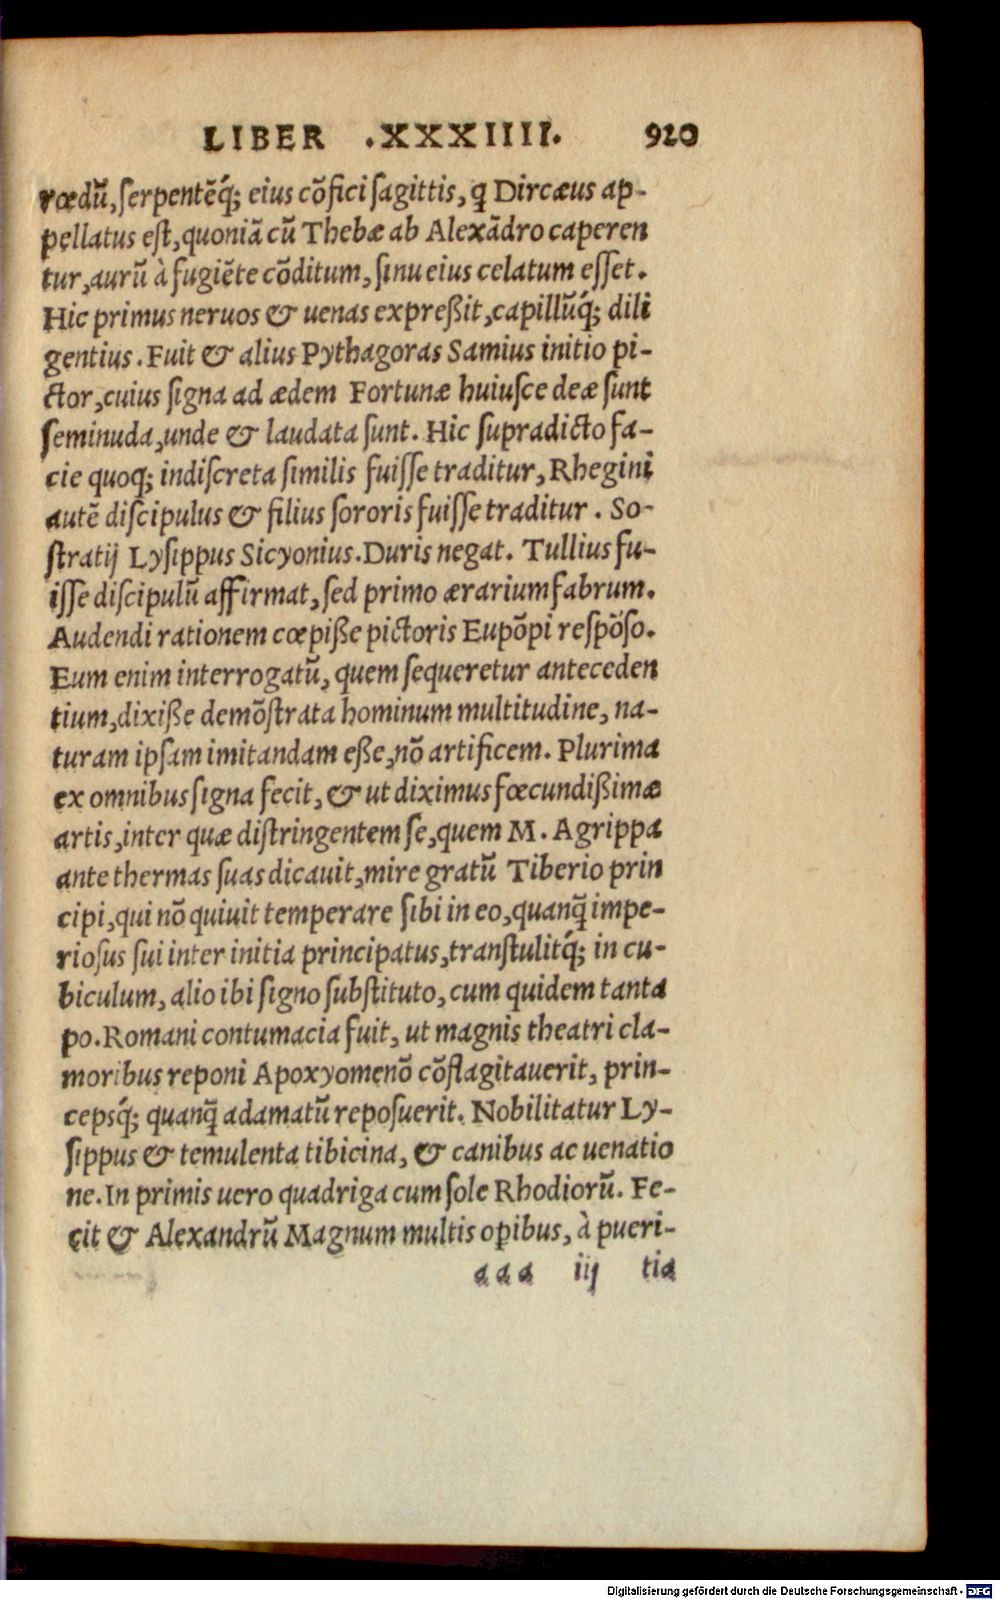 LIBER .XXXIIII. 920
rœdũ, ſerpentẽq́; eius cõfici ſagittis, ꝗ Dircæus ap-
pellatus eſt, quoniã cũ Thebæ ab Alexãdro caperen
tur, aurũ à fugiẽte cõditum, ſinu eius celatum eſſet.
Hic primus neruos & uenas expreßit, capillũq́; dili
gentius. Fuit & alius Pythagoras Samius initio pi-
ctor, cuius ſigna ad ædem Fortunæ huiuſce deæ ſunt
ſeminuda, unde & laudata ſunt. Hic ſupradicto fa-
cie quoq; indiſcreta ſimilis fuiſſe traditur, Rhegini
autẽ diſcipulus & filius ſororis fuiſſe traditur. So-
ſtratij Lyſippus Sicyonius. Duris negat. Tullius fu-
iſſe diſcipulũ affirmat, ſed primo ærarium fabrum.
Audendi rationem cœpiße pictoris Eupõpi reſpõſo.
Eum enim interrogatũ, quem ſequeretur anteceden
tium, dixiße demõſtrata hominum multitudine, na-
turam ipſam imitandam eße, nõ artificem. Plurima
ex omnibus ſigna fecit, & ut diximus fœcundißimæ
artis, inter quæ diſtringentem ſe, quem M. Agrippa
ante thermas ſuas dicauit, mire gratũ Tiberio prin
cipi, qui nõ quiuit temperare ſibi in eo, quanq̃ impe-
rioſus ſui inter initia principatus, tranſtulitq́; in cu-
biculum, alio ibi ſigno ſubſtituto, cum quidem tanta
po. Romani contumacia fuit, ut magnis theatri cla-
moribus reponi Apoxyomenõ cõflagitauerit, prin-
cepsq́; quanq̃ adamatũ repoſuerit. Nobilitatur Ly-
ſippus & temulenta tibicina, & canibus ac uenatio
ne. In primis uero quadriga cum ſole Rhodiorũ. Fe-
cit & Alexandrũ Magnum multis opibus, à pueri-
aaa iij tia
Digitalisierung gefördert durch die Deutsche Forschungsgemeinschaft - DFG